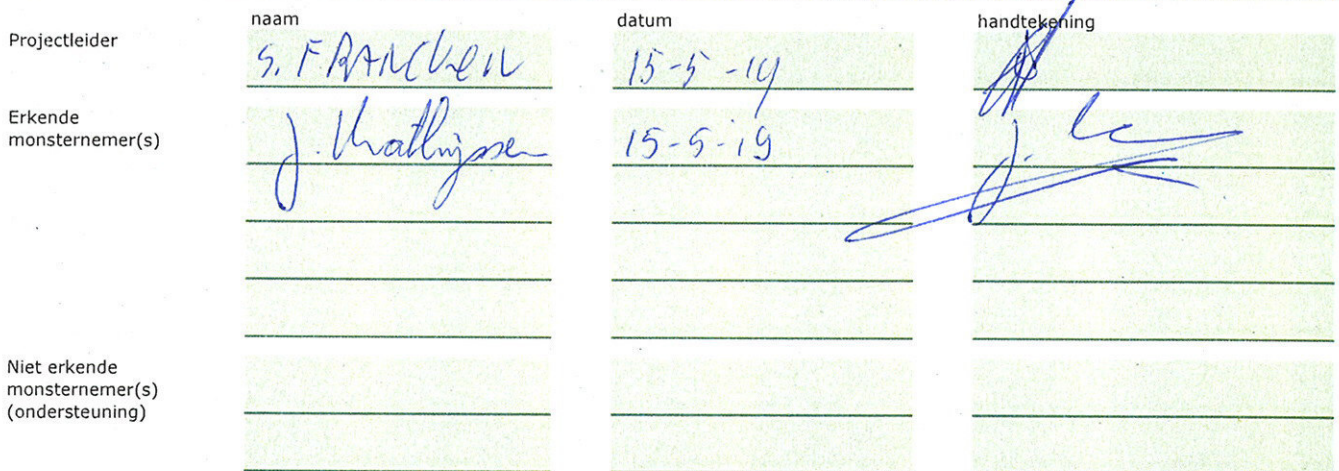 naam datum handtekening
Projectleider S. FRANCKEN 15-5-19
Erkende
monsternemer(s) J. Mathijssen 15-5-19
Niet erkende
monsternemer(s)
(ondersteuning)